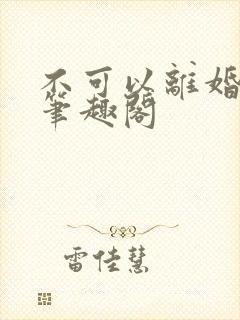 不可以離婚
筆趣閣
雷佳慧